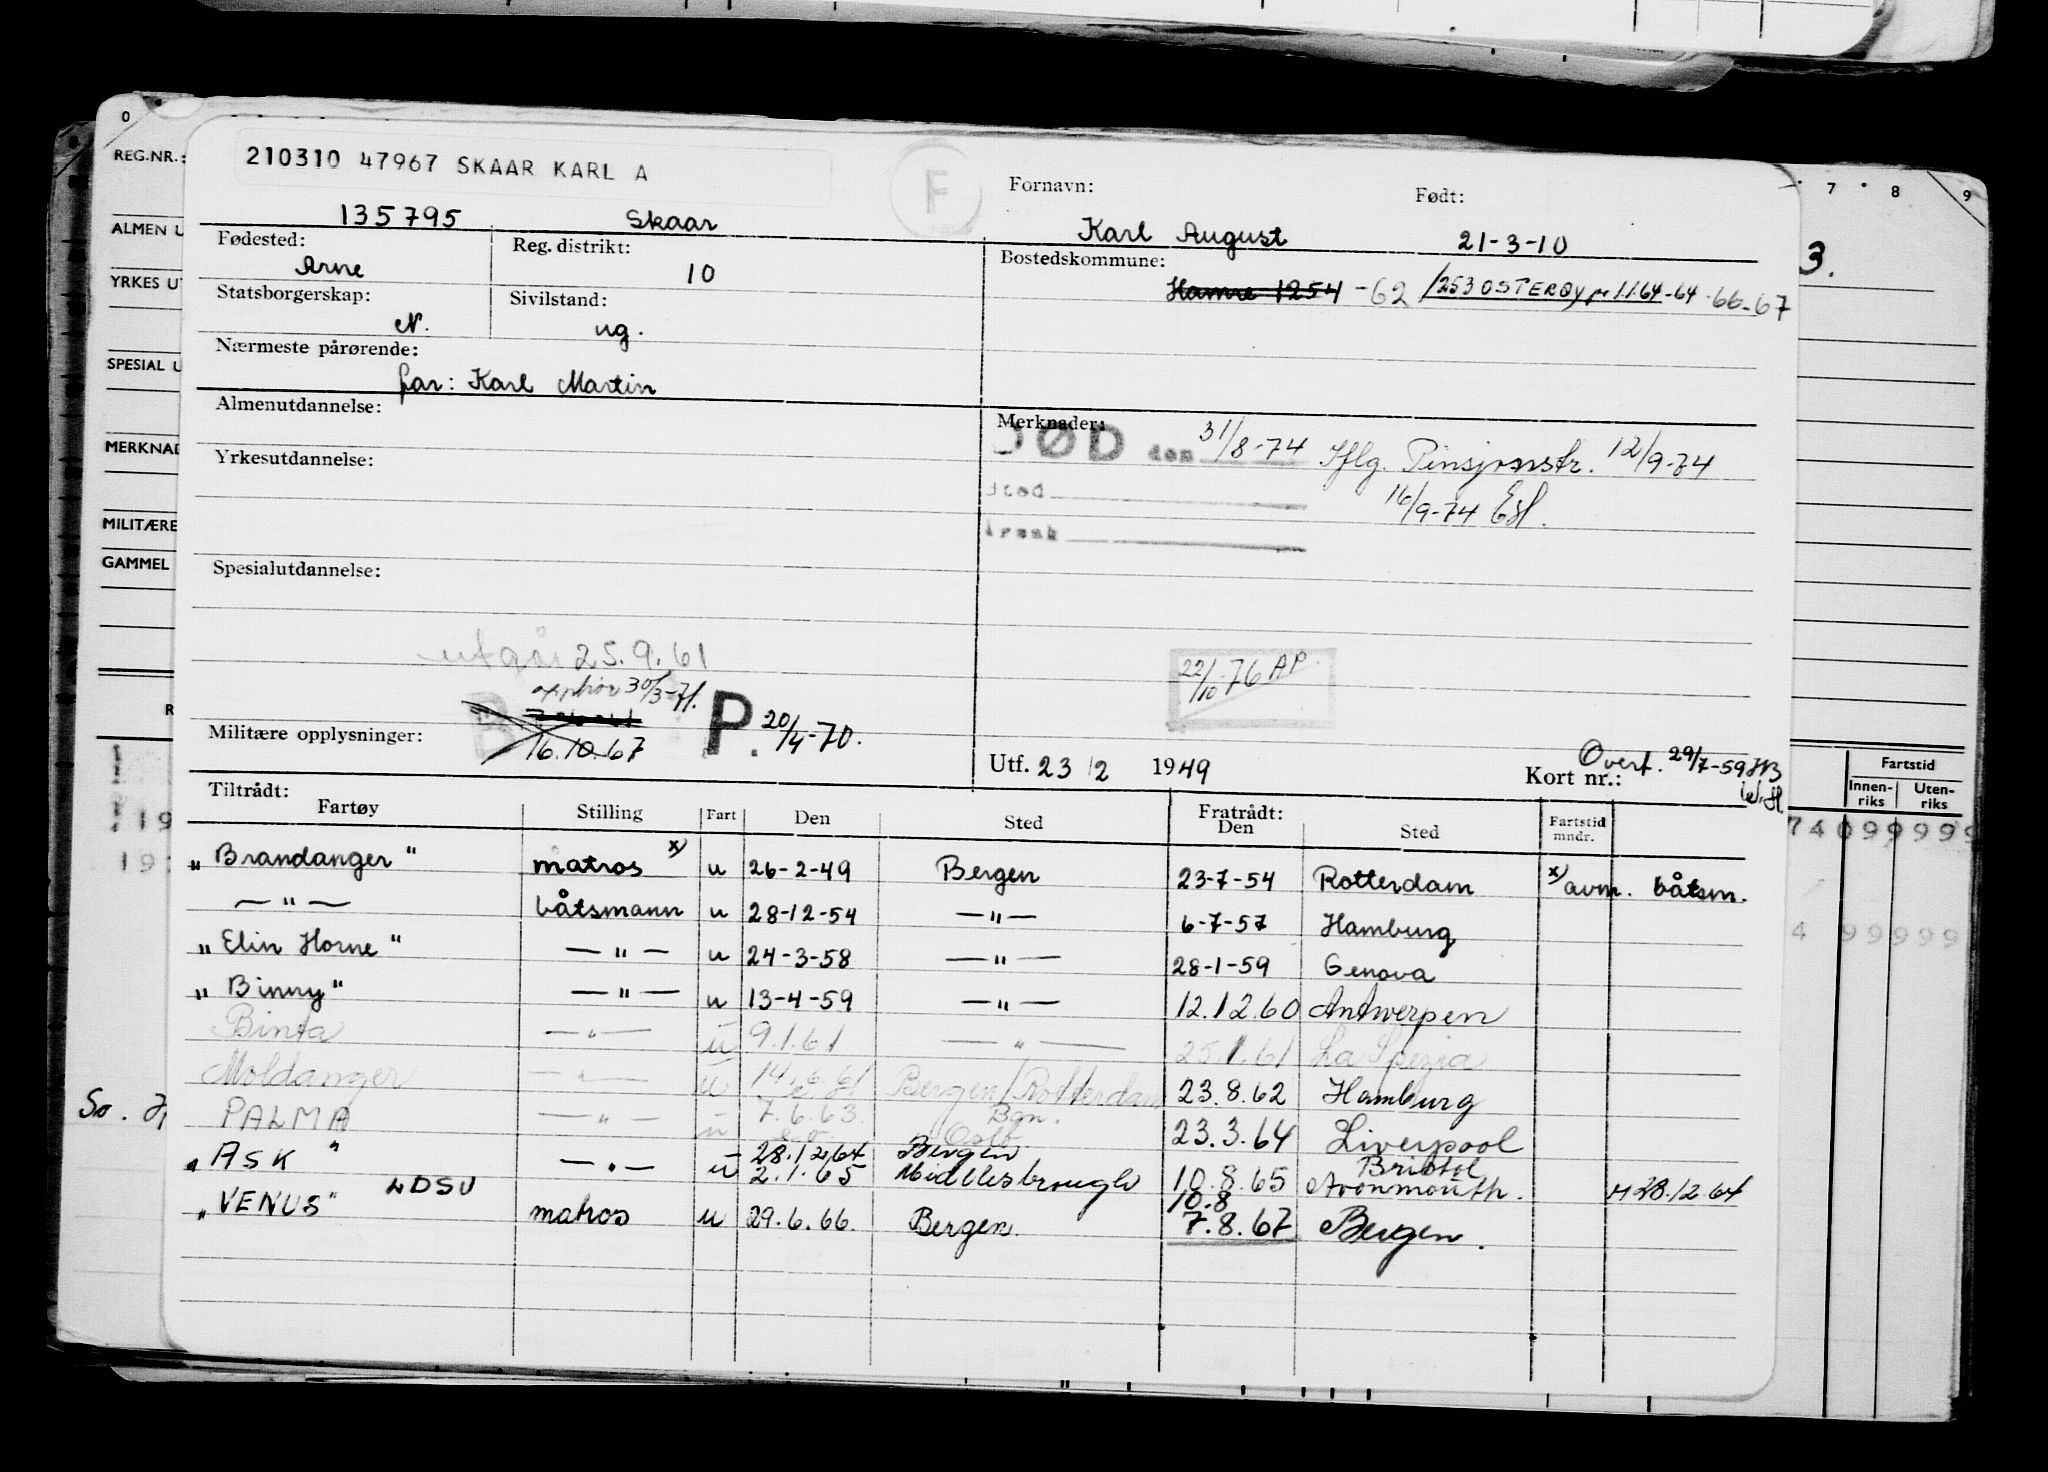 0
REG.NR.:
210310 47967 SKAAR KARL A
F
Fornavn:
Født:
7 8 9
135795 Skaar Karl August 21-3-10
3.
ALMEN U
Fødested: Arne
Reg. distrikt: 10
Bostedskommune: Hamre 1254 -62 1253 OSTERØY pr 1.1.64-64-66-67
YRKES UT
Statsborgerskap: N.
Sivilstand: ug.
Nærmeste pårørende:
far: Karl Martin
SPESIAL U
Almenutdannelse:
Merknader:
DØD den 31/8-74 Iflg. Pinsjonstr. 12/9-74
MERKNAD
Yrkesutdannelse:
Sted
16/9-74
Årsak
MILITÆRE
GAMMEL
Spesialutdannelse:
utgår 25.9.61
opphør 30/3-71.
22/10-76 AP.
P. 20/4-70.
Militære opplysninger:
16.10.67
Utf. 23/2 1949
Overf. 29/7-59
Kort nr.:
Fartstid
Innen-riks
Uten-riks
Tiltrådt:
Fratrådt:
Fartøy Stilling Fart Den Sted Den Sted Fartstid mndr.
74099999
19
"Brandanger" matros x) u 26-2-49 Bergen 23-7-54 Rotterdam x) avm. båtsm.
— " — båtsmann u 28-12-54 — " — 6-7-57 Hamburg
4 99999
"Elin Horne" — " — u 24-3-58 — " — 28-1-59 Genova
"Binny" — " — u 13-4-59 — " — 12.12.60 Antwerpen
Binta — " — u 9.1.61 — " — 25.1.61 La Spezia
Moldanger — " — u 14.6.61 Bergen/Rotterdam 23.8.62 Hamburg
PALMA — " — u 7.6.63. Bgn. Oslo 23.3.64 Liverpool
"ASK" — " — u 28.12.64 Bergen
2.1.65 Middlesbrough 10.8.65 Bristol Avonmouth. H 28.12.64
"VENUS" LDSU matros u 29.6.66. Bergen. 10.8
7.8.67 Bergen.